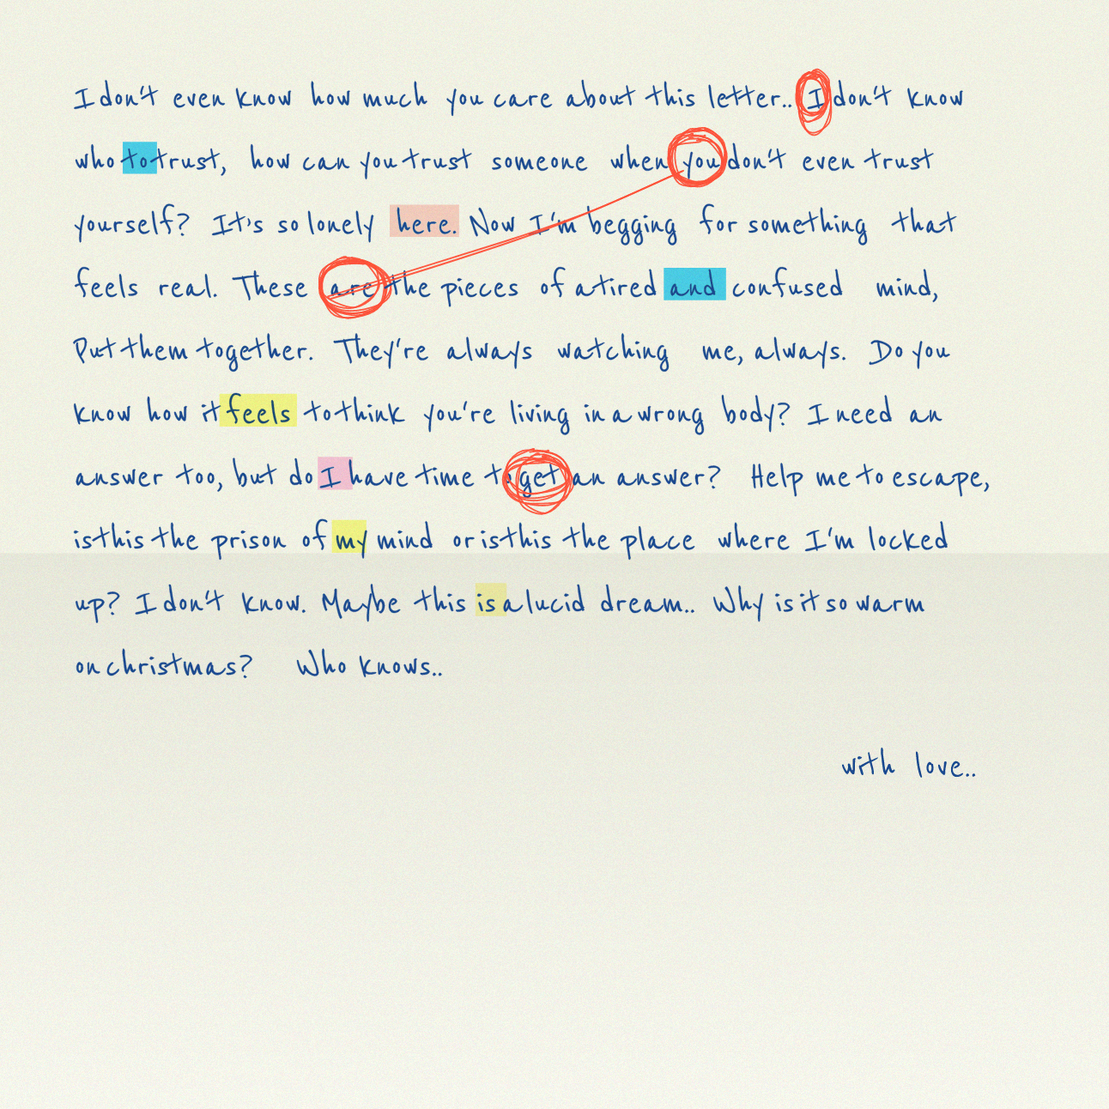 I don't even know how much you care about this letter.. I don't know
who to trust, how can you trust someone when you don't even trust
yourself? It's so lonely here. Now I'm begging for something that
feels real. These are the pieces of a tired and confused mind,
Put them together. They're always watching me, always. Do you
know how it feels to think you're living in a wrong body? I need an
answer too, but do I have time to get an answer? Help me to escape,
is this the prison of my mind or is this the place where I'm locked
up? I don't know. Maybe this is a lucid dream.. Why is it so warm
on christmas? Who knows..
with love..